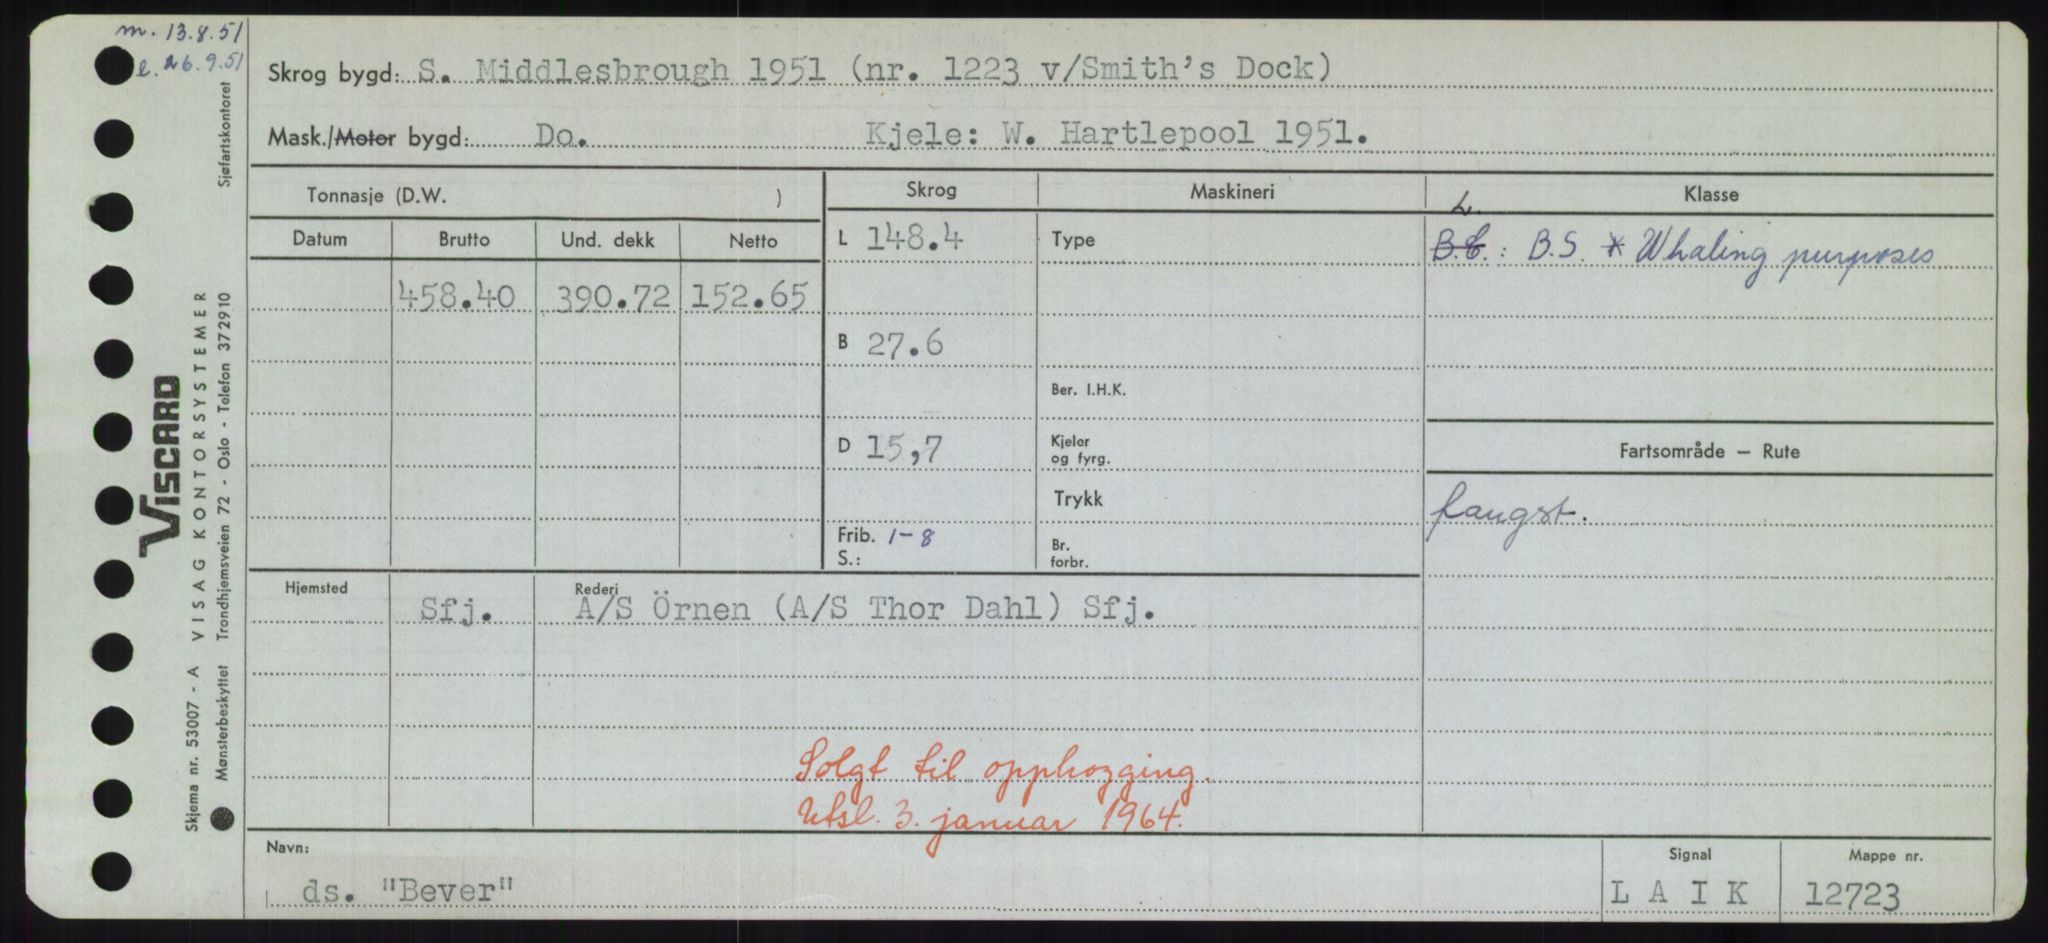 m. 13.8.51
l. 26.9.51
Skrog bygd: S. Middlesbrough 1951 (nr. 1223 v/Smith's Dock)
Mask./Motor bygd: Do. Kjele: W. Hartlepool 1951.
Tonnasje (D.W. )
Skrog
Maskineri
Klasse
Datum Brutto Und. dekk Netto
L 148.4
Type
L.
B.C.: B.S. * Whaling purposes
458.40 390.72 152.65
B 27.6
Ber. I.H.K.
D 15,7
Kjeler
og fyrg.
Fartsområde – Rute
Trykk
fangst.
Frib. 1-8
S.:
Br.
forbr.
Hjemsted
Rederi
Sfj. A/S Örnen (A/S Thor Dahl) Sfj.
Solgt til opphogging.
Utsl. 3. januar 1964.
Navn:
ds. "Bever"
Signal
L A I K
Mappe nr.
12723
VISCARD
Skjema nr. 53007 - A VISAG KONTORSYSTEMER
Mønsterbeskyttet Trondhjemsveien 72 - Oslo - Telefon 372910 Sjøfartskontoret